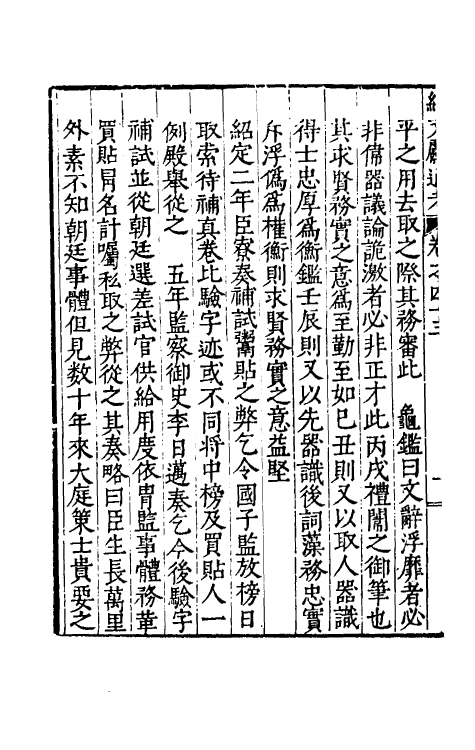 平之用去取之際其務審此　龜鑑曰文辭浮靡者必
非偹器議論詭激者必非正才此丙戌禮闈之御筆也
其求賢務實之意爲至勤至如已丑則又以取人器識
得士忠厚爲衡鑑壬辰則又以先器識後詞藻務忠實
斥浮僞爲權衡則求賢務實之意益堅
紹定二年臣寮奏補試鬻貼之弊乞令國子監放榜日
取索待補真卷比驗字迹或不同將中榜及買貼人一
例殿舉從之　五年監察御史李日邁奏乞今後驗字
補試並從朝廷選差試官供給用度依胄監事體務革
買貼冐名計囑私取之弊從之其奏略曰臣生長萬里
外素不知朝廷事體但見数十年來大庭策士貴要之